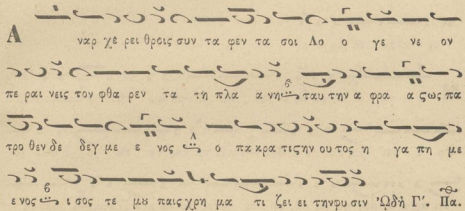 Α ναρ χε ρει θροις συν τα φεν τα σοι Λο ο γε νε ον
πε ραι νεις τον φθα ρεν τα τη πλα α νη ταυ την α φρα α ζως πα
τρο θεν δε δεγ με ε νος ο πα κρα τιζην ου τος η γα πη με
ε νος ι σος τε μου παις χρη μα τι ζει ει την φυ σιν Ὠδὴ Γʹ. Πα.